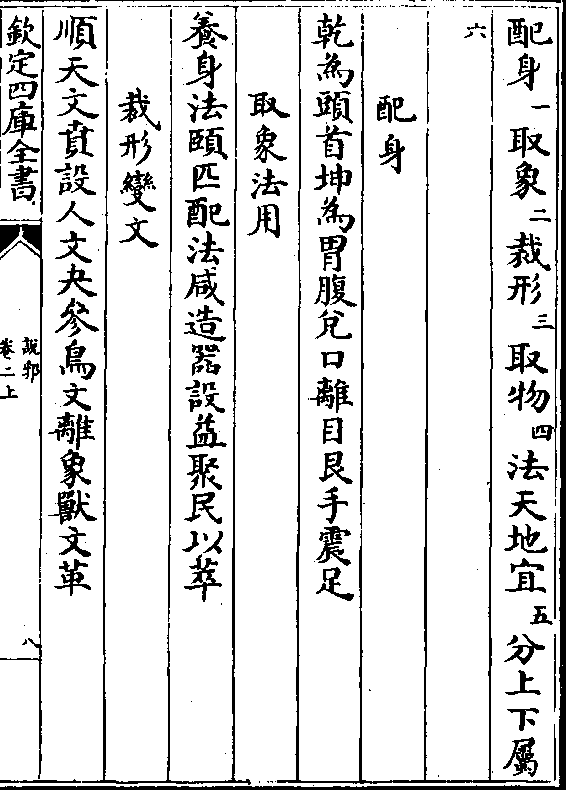 配身一取象二裁形三取物四法天地宜五分上下屬
六
配身
乾為頭首坤為胃腹兌口離目艮手震足
取象法用
養身法頤匹配法咸造器設益聚民以萃
裁形變文
順天文賁設人文夬參鳥文離象獸文革
欽定四庫全書
說郛
卷二上
八